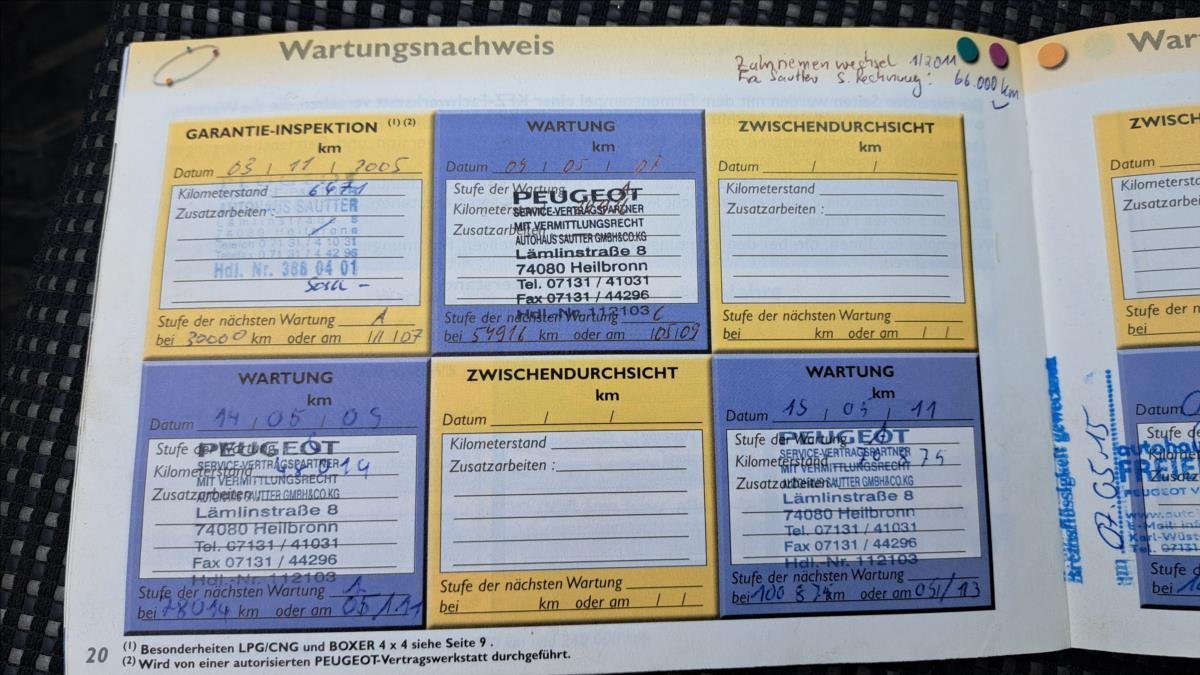 Wartungsnachweis
Zahnriemen wechsel 1/2011
Fa Sautter s. Rechnung: 66.000 km
GARANTIE-INSPEKTION (1) (2)
km
Datum 03 / 11 / 2005
Kilometerstand 6471
Zusatzarbeiten :
AUTOHAUS SAUTTER
Lämlinstraße 8
74080 Heilbronn
Telefon 0 71 31 / 4 10 31
Telefax 0 71 31 / 4 42 96
Hdl. Nr. 388 04 01
Stufe der nächsten Wartung A
bei 30000 km oder am 11/07
WARTUNG
km
Datum 09 / 05 / 07
Stufe der Wartung A
Kilometerstand
Zusatzarbeiten
PEUGEOT
SERVICE-VERTRAGSPARTNER
MIT VERMITTLUNGSRECHT
AUTOHAUS SAUTTER GMBH&CO.KG
Lämlinstraße 8
74080 Heilbronn
Tel. 07131 / 41031
Fax 07131 / 44296
Hdl.-Nr. 112103
Stufe der nächsten Wartung C
bei 54916 km oder am 05/09
ZWISCHENDURCHSICHT
km
Datum / /
Kilometerstand
Zusatzarbeiten :
Stufe der nächsten Wartung
bei km oder am / /
WARTUNG
km
Datum 14 / 05 / 09
Stufe der Wartung
Kilometerstand 48014
Zusatzarbeiten
PEUGEOT
SERVICE-VERTRAGSPARTNER
MIT VERMITTLUNGSRECHT
AUTOHAUS SAUTTER GMBH&CO.KG
Lämlinstraße 8
74080 Heilbronn
Tel. 07131 / 41031
Fax 07131 / 44296
Hdl.-Nr. 112103
Stufe der nächsten Wartung A
bei 78014 km oder am 05/11
ZWISCHENDURCHSICHT
km
Datum / /
Kilometerstand
Zusatzarbeiten :
Stufe der nächsten Wartung
bei km oder am / /
WARTUNG
km
Datum 15 / 03 / 11
Stufe der Wartung A
Kilometerstand
Zusatzarbeiten
PEUGEOT
SERVICE-VERTRAGSPARTNER
MIT VERMITTLUNGSRECHT
AUTOHAUS SAUTTER GMBH&CO.KG
Lämlinstraße 8
74080 Heilbronn
Tel. 07131 / 41031
Fax 07131 / 44296
Hdl.-Nr. 112103
Stufe der nächsten Wartung
bei 100 875 km oder am 05/13
20
(1) Besonderheiten LPG/CNG und BOXER 4 x 4 siehe Seite 9 .
(2) Wird von einer autorisierten PEUGEOT-Vertragswerkstatt durchgeführt.
Bremsflüssigkeit gewechselt
am 07.05.15
War
ZWISC
Datum
Kilometersta
Zusatzarbei
Stufe der n
bei
Datum
Stufe de
autohau
FREIE
PEUGEOT V
Karl-Wüst
Tel. 0713
Stufe de
bei